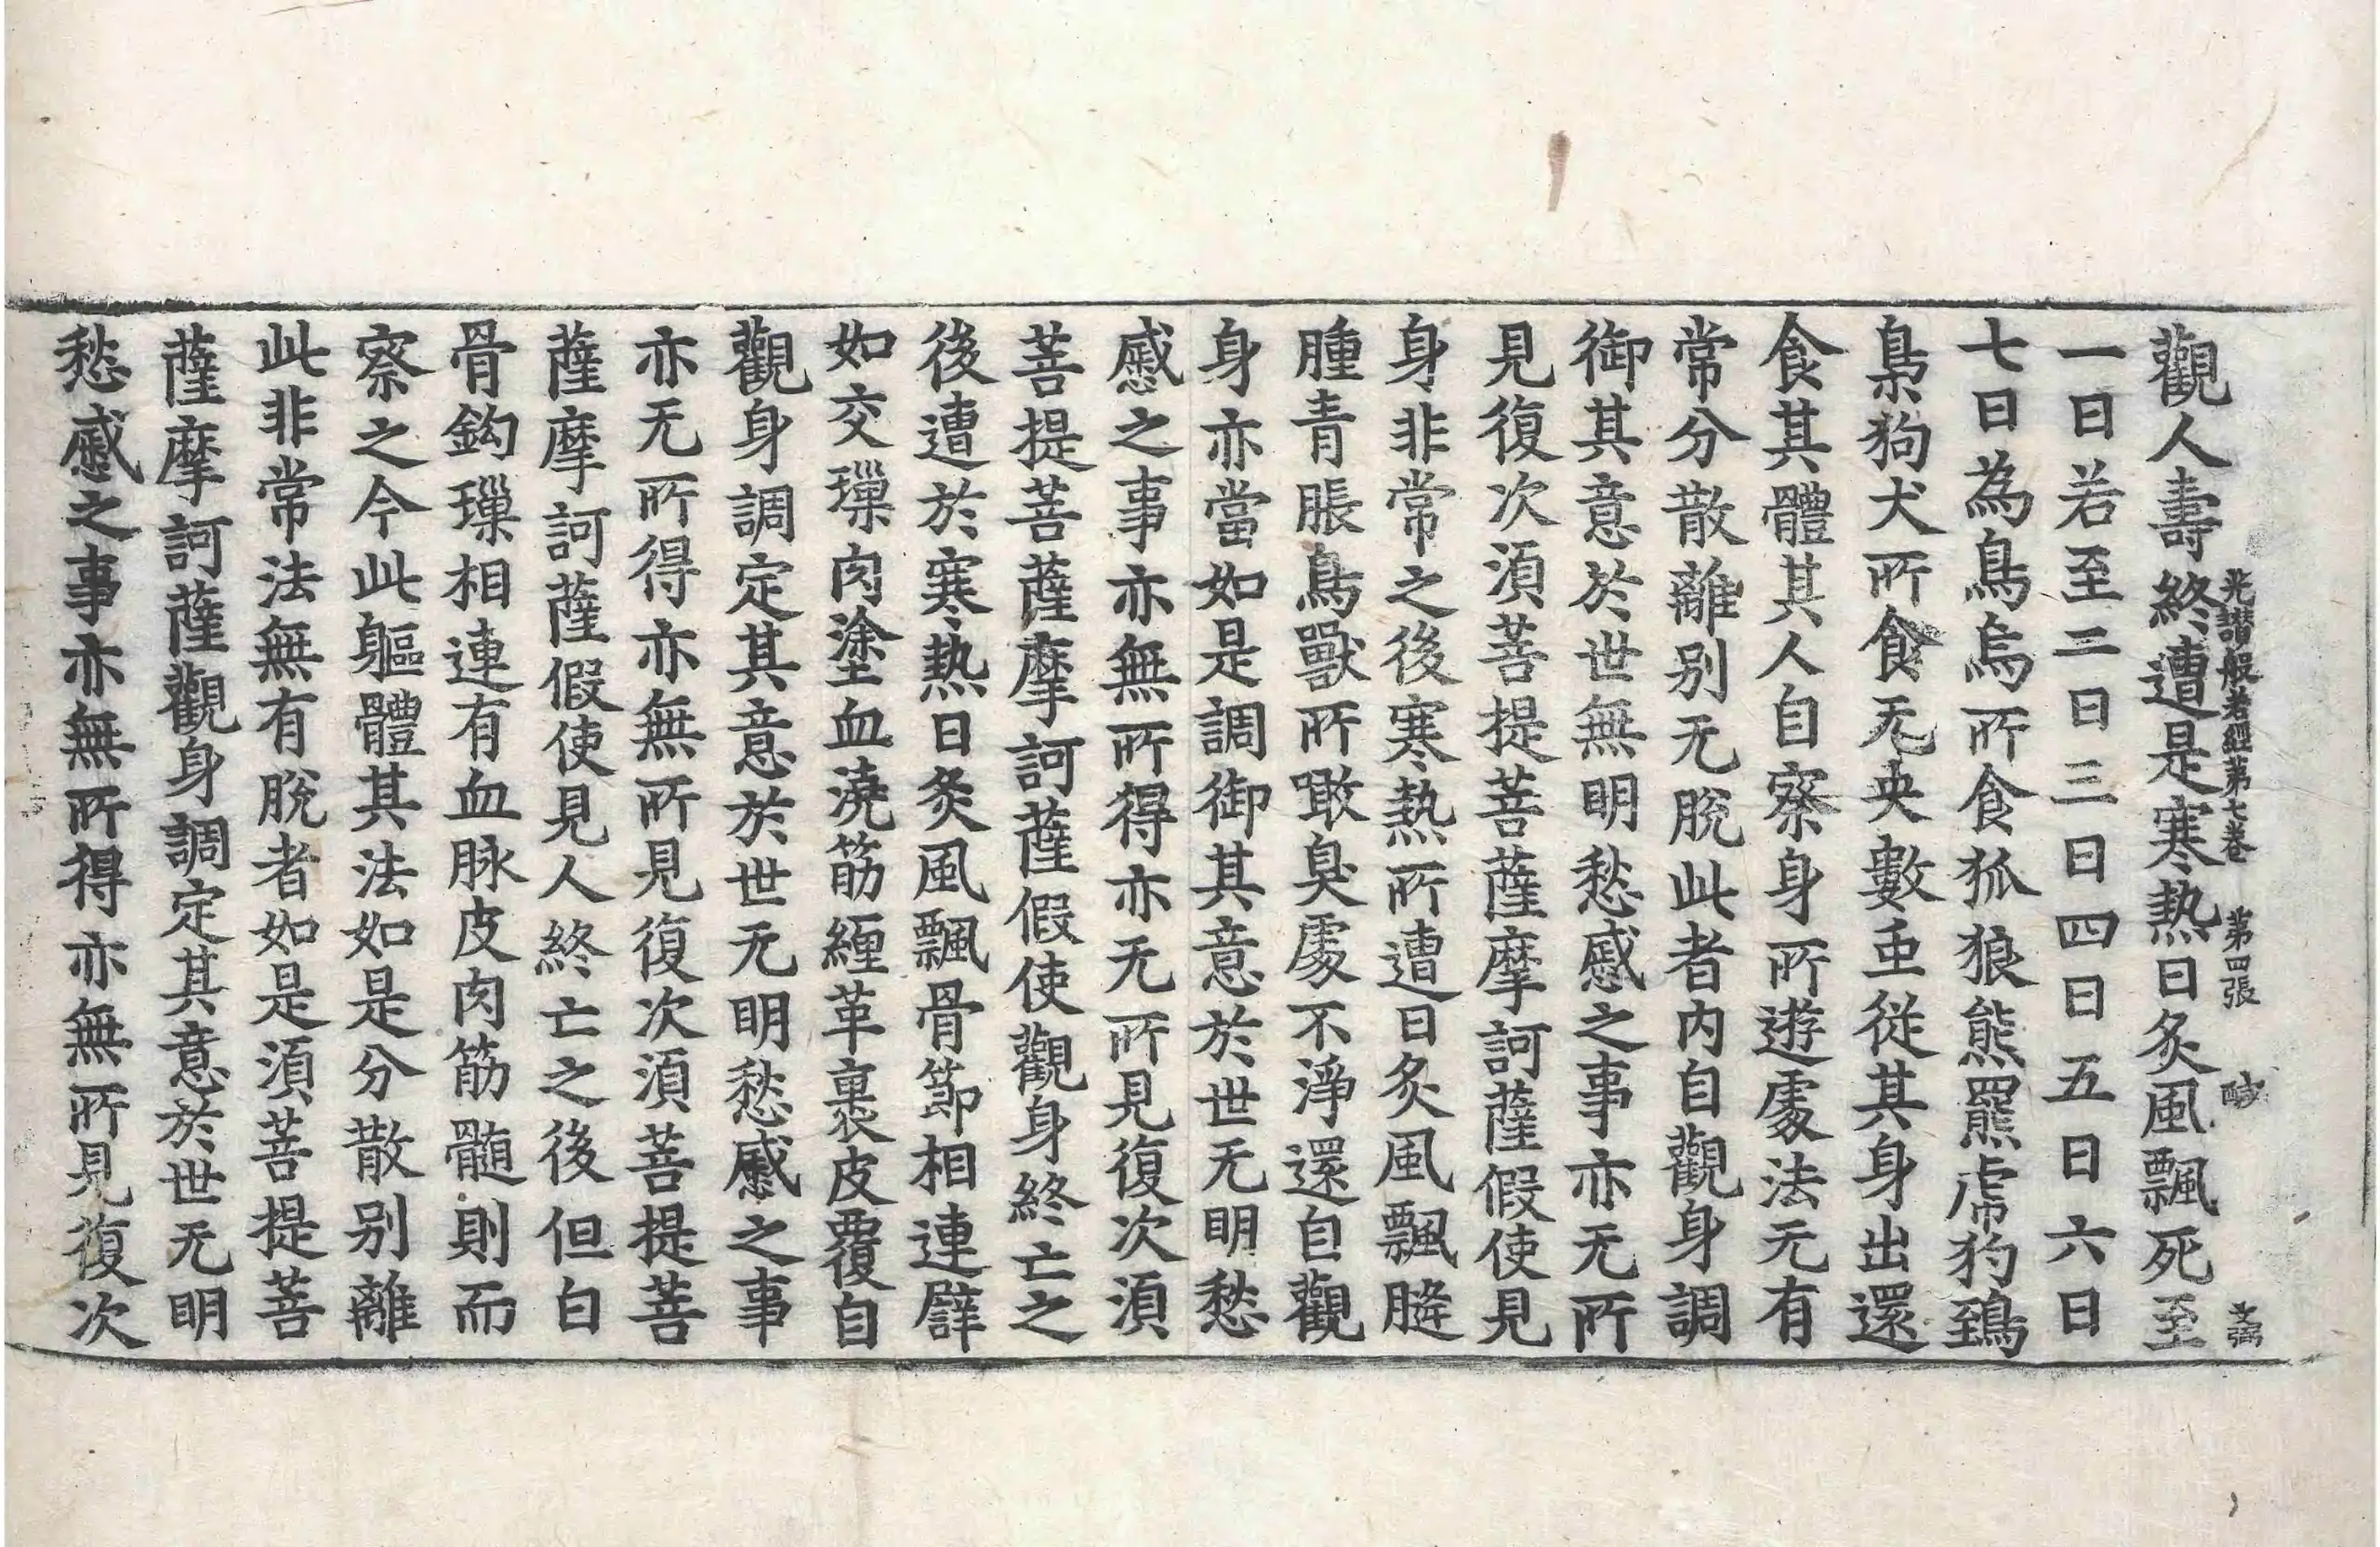 觀人壽終遭是寒熱日炙風飄死至
光讃般若經第七卷 第四張 醎 文弼
一日若至二日三日四日五日六日
七日為鳥烏所食狐狼熊羆虎犳鵄
梟狗犬所食无央數虫從其身出還
食其體其人自察身所遊處法无有
常分散離別无脫此者內自觀身調
御其意於世無明愁慼之事亦无所
見復次須菩提菩薩摩訶薩假使見
身非常之後寒熱所遭日炙風飄膖
腫青脹鳥獸所噉臭處不淨還自觀
身亦當如是調御其意於世无明愁
慼之事亦無所得亦无所見復次須
菩提菩薩摩訶薩假使觀身終亡之
後遭於寒熱日炙風飄骨節相連譬
如交璅肉塗血澆筋纏革裹皮覆自
觀身調定其意於世无明愁慼之事
亦无所得亦無所見復次須菩提菩
薩摩訶薩假使見人終亡之後但白
骨鈎璅相連有血脉皮肉筋髄則而
察之今此軀體其法如是分散別離
此非常法無有脫者如是須菩提菩
薩摩訶薩觀身調定其意於世无明
愁慼之事亦無所得亦無所見復次